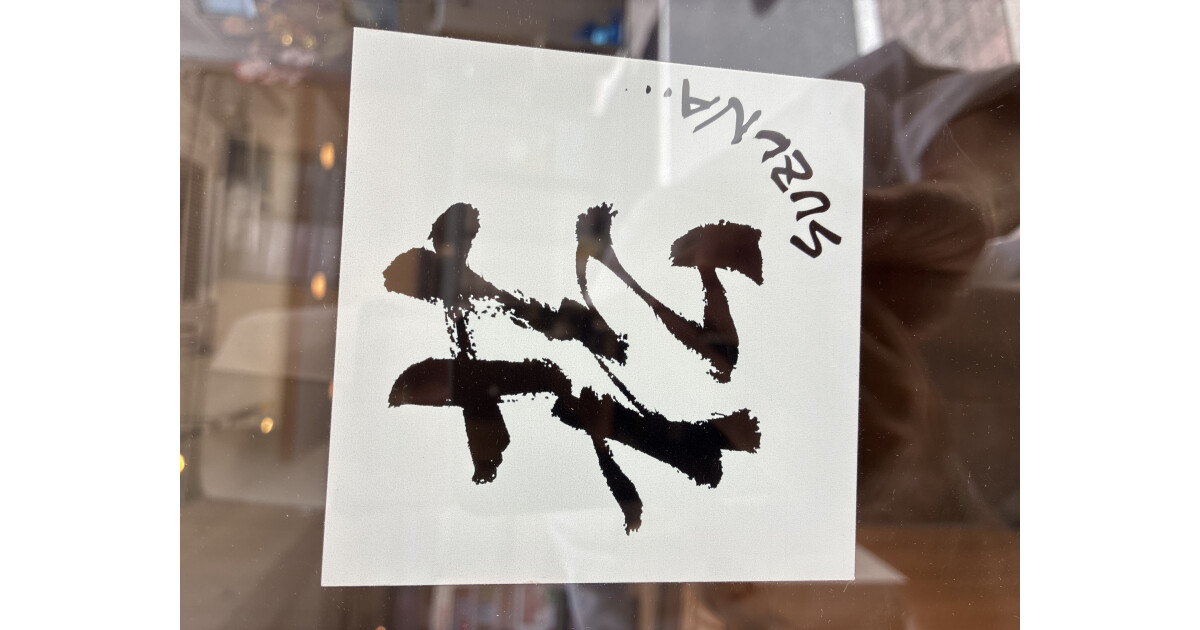 菘
SUZUNA...